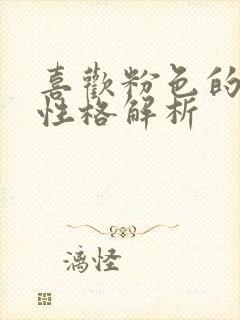 喜歡粉色的
性格解析
漓怪